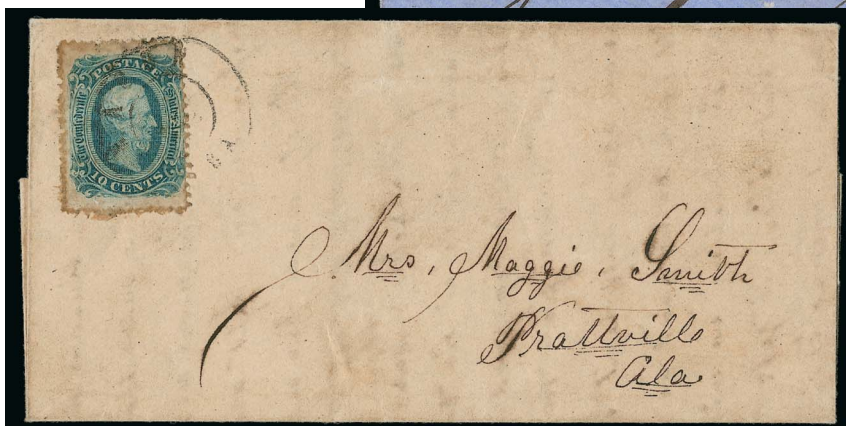 POSTAGE
The Confederate States of America
10 CENTS
Mrs, Maggie, Smith
Prattville
Ala